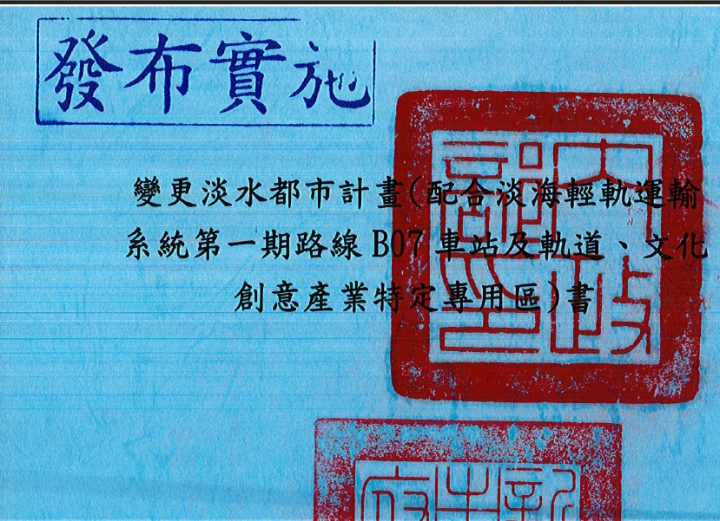 發布實施
變更淡水都市計畫(配合淡海輕軌運輸
系統第一期路線B07車站及軌道、文化
創意產業特定專用區)書
內政
部印
新
北
市
府